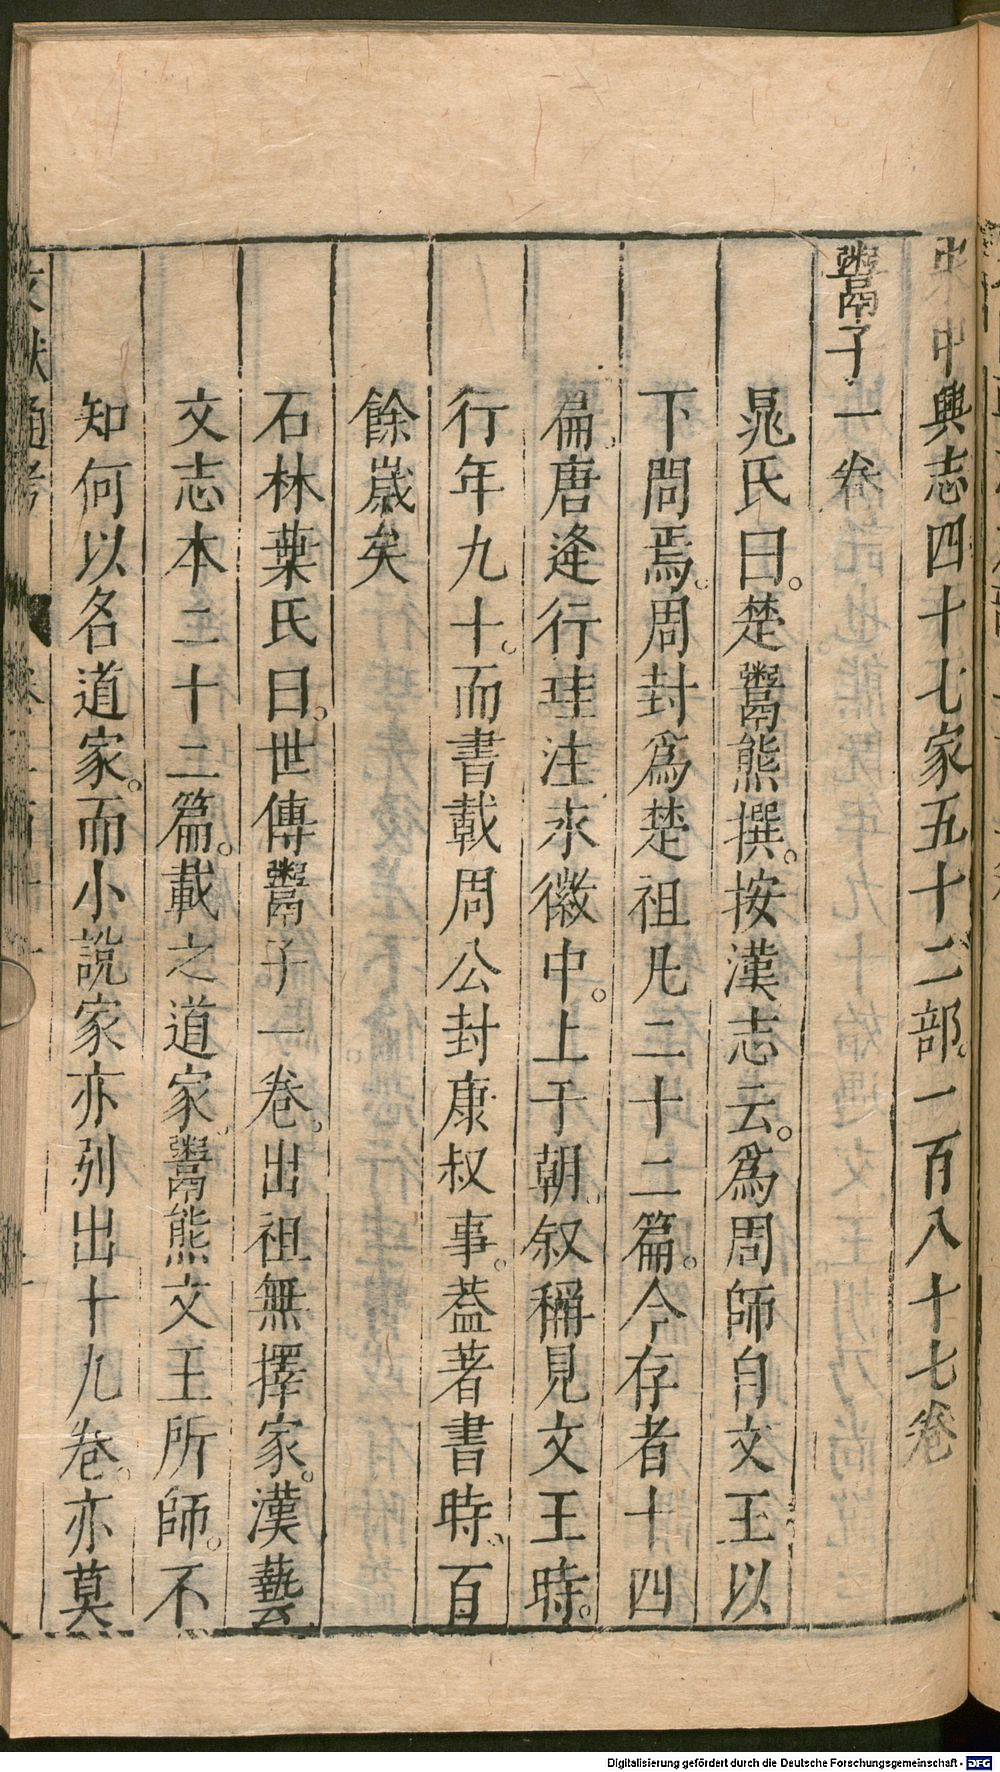 宋中興志四十七家五十二部。一百八十七卷
鬻子一卷
晁氏曰。楚鬻熊撰。按漢志云。爲周師自文王以
下問焉。周封爲楚祖凡二十二篇。今存者十四
篇。唐逄行珪注永徽中。上于朝。叙稱見文王時。
行年九十。而書載周公封康叔事。葢著書時、百
餘歲矣
石林葉氏曰。世傳鬻子一卷。出祖無擇家。漢藝
文志本二十二篇。載之道家。鬻熊文王所師。不
知何以名道家。而小説家亦列出十九卷。亦莫
文獻通考
Digitalisierung gefördert durch die Deutsche Forschungsgemeinschaft - DFG